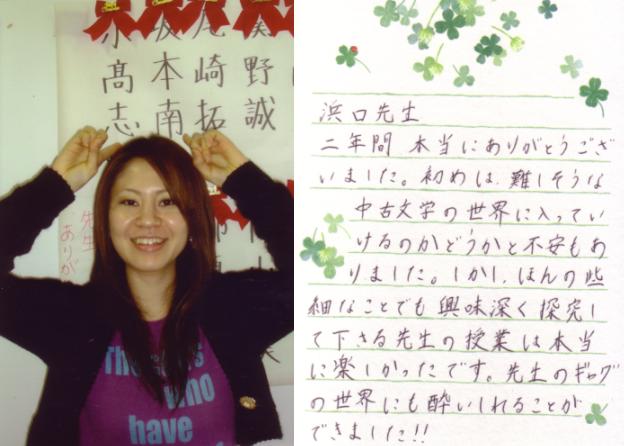 坂本南
尾崎拓
野誠
高志
先生
ありが
Those
who
have
浜口先生
二年間 本当にありがとうござ
いました。初めは、難しそうな
中古文学の世界に入ってい
けるのかどうかと不安もあ
りました。しかし、ほんの些
細なことでも興味深く探究し
て下さる先生の授業は本当
に楽しかったです。先生のギャグ
の世界にも酔いしれることが
できました!!